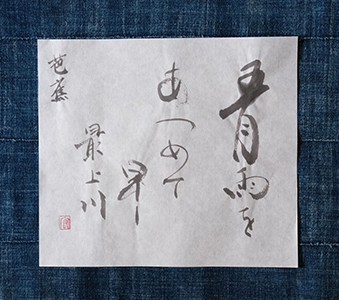 五月雨を
あつめて
早し
最上川
芭蕉